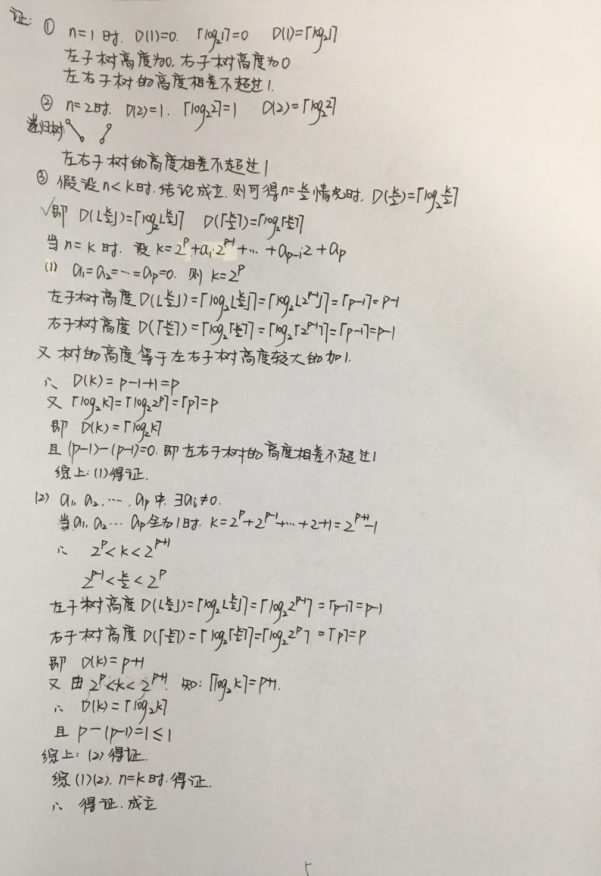 证: ① n=1时. D(1)=0. ⌈log₂1⌉=0 D(1)=⌈log₂1⌉
左子树高度为0. 右子树高度为0
左右子树的高度相差不超过1.
② n=2时. D(2)=1. ⌈log₂2⌉=1 D(2)=⌈log₂2⌉
递归树:
左右子树的高度相差不超过1
③ 假设n<k时. 结论成立. 则可得n=k/2情况时. D(k/2)=⌈log₂k/2⌉
√即 D(⌊k/2⌋)=⌈log₂⌊k/2⌋⌉ D(⌈k/2⌉)=⌈log₂⌈k/2⌉⌉
当n=k时. 设 k=2^p+a₁·2^(p-1)+…+a_(p-1)·2+a_p
(1) a₁=a₂=…=a_p=0. 则 k=2^p
左子树高度D(⌊k/2⌋)=⌈log₂⌊k/2⌋⌉=⌈log₂⌊2^(p-1)⌋⌉=⌈p-1⌉=p-1
右子树高度D(⌈k/2⌉)=⌈log₂⌈k/2⌉⌉=⌈log₂⌈2^(p-1)⌉⌉=⌈p-1⌉=p-1
又 树的高度等于左右子树高度较大的加1.
∴ D(k)=p-1+1=p
又 ⌈log₂k⌉=⌈log₂2^p⌉=⌈p⌉=p
即 D(k)=⌈log₂k⌉
且 (p-1)-(p-1)=0. 即左右子树的高度相差不超过1
综上: (1)得证.
(2) a₁, a₂, …, a_p中. ∃a_i≠0.
当a₁, a₂…a_p全为1时. k=2^p+2^(p-1)+…+2+1=2^(p+1)-1
∴ 2^p<k<2^(p+1)
2^(p-1)<k/2<2^p
左子树高度D(⌊k/2⌋)=⌈log₂⌊k/2⌋⌉=⌈log₂2^(p-1)⌉=⌈p-1⌉=p-1
右子树高度D(⌈k/2⌉)=⌈log₂⌈k/2⌉⌉=⌈log₂2^p⌉=⌈p⌉=p
即 D(k)=p+1
又 由2^p<k<2^(p+1). 知: ⌈log₂k⌉=p+1.
∴ D(k)=⌈log₂k⌉
且 p-(p-1)=1≤1
综上: (2)得证.
综(1)(2). n=k时. 得证.
∴ 得证. 成立